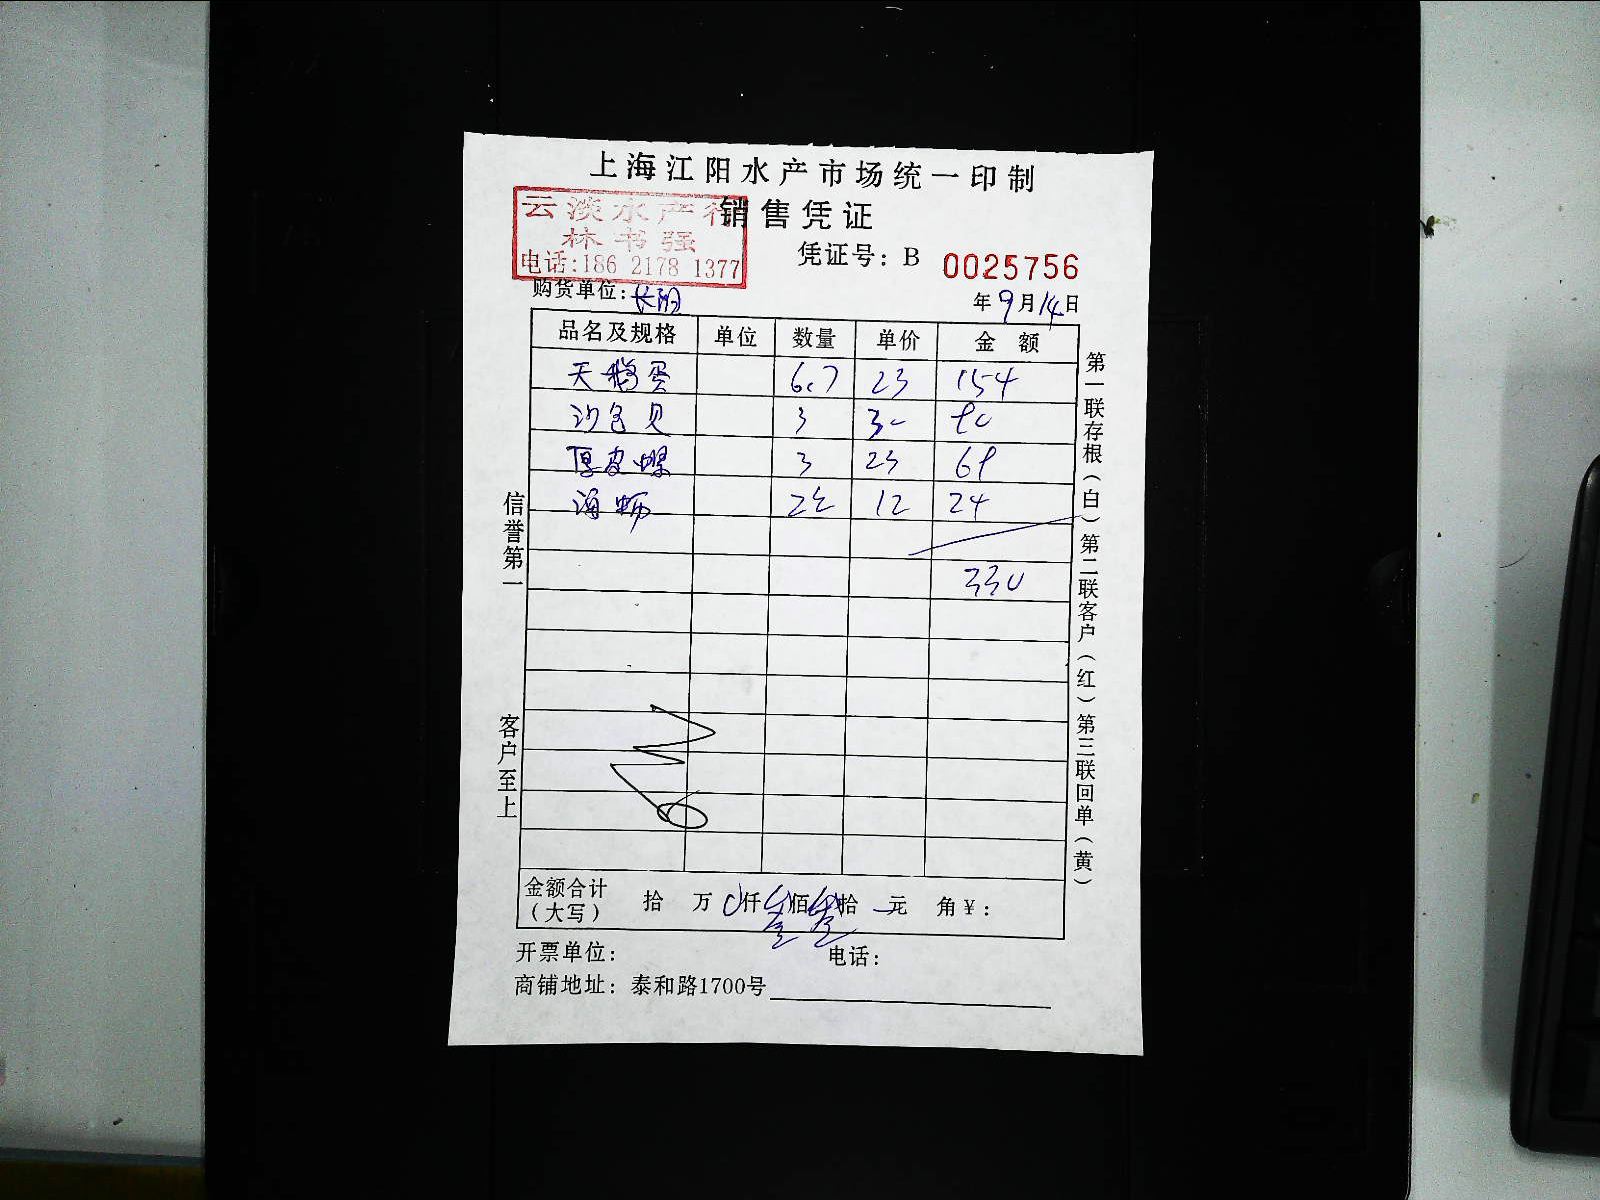 上海江阳水产市场统一印制
销售凭证
云淡水产行
林书强
电话:186 2178 1377
凭证号: B 0025756
购货单位: 长阳
年 9 月 14 日
品名及规格 单位 数量 单价 金 额
天鹅蛋 6.7 23 154
沙包贝 3 30 90
厚皮螺 3 23 69
海蛎 2 12 24
330
信誉第一
客户至上
第一联存根(白) 第二联客户(红) 第三联回单(黄)
金额合计 拾 万 0 仟 叁 佰 叁 拾 元 角 ¥:
(大写)
开票单位: 电话:
商铺地址: 泰和路1700号